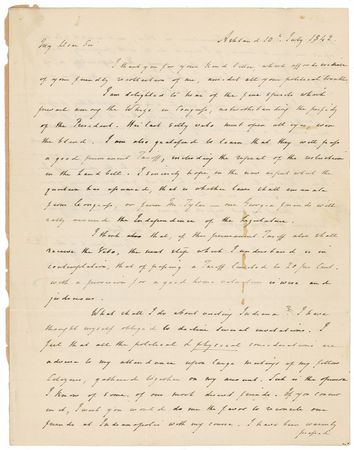 Ashland 30th July 1842
My Dear Sir
I thank you for your kind letter, which affords evidence
of your friendly recollection of me, amidst all your political battles
I am delighted to hear of the fine spirits which
prevail among the Whigs in Congress, notwithstanding the perfidy
of the President. His last silly veto must open all eyes
the blind. I am also gratified to learn that they will pass
a good permanent Tariff, including the repeal of the restriction
in the land bill. I sincerely hope, in the new aspect which the
question has assumed, that is whether laws shall emanate
from Congress, or from Mr. Tyler our Georgia friends will
rally around the Independence of the Legislature.
I think also that, if this permanent Tariff also shall
receive the Veto, the next step which I understand is in
contemplation, that of passing a Tariff limited to 20 per Cent.
with a provision for a good home valuation is wise and
judicious.
What shall I do about visiting Indiana? I have
thought myself obliged to decline several invitations. I
feel that all the political & physical considerations are
adverse to my attendance upon large meetings of my fellow
Citizens, gathered together on my account. Such is the opinion
I know of some, of our most discreet friends. If you concur
in it, I wish you would do me the favor to reconcile our
friends at Indianapolis with my course. I have been warmly
pressed